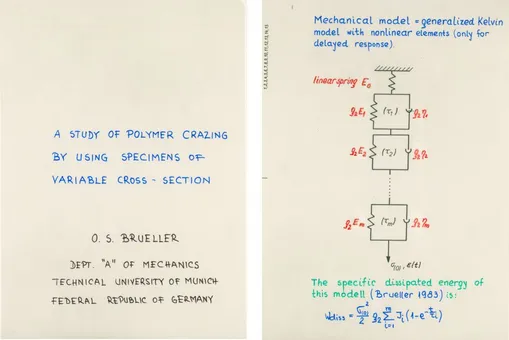 A STUDY OF POLYMER CRAZING
BY USING SPECIMENS OF
VARIABLE CROSS - SECTION
O. S. BRUELLER
DEPT. "A" OF MECHANICS
TECHNICAL UNIVERSITY OF MUNICH
FEDERAL REPUBLIC OF GERMANY
Mechanical model = generalized Kelvin
model with nonlinear elements (only for
delayed response).
linear spring E₀
g₂E₁ (τ₁) g₂η₁
g₂E₂ (τ₂) g₂η₂
g₂Eₘ (τₘ) g₂ηₘ
The specific dissipated energy of
this modell (Brueller 1983) is: